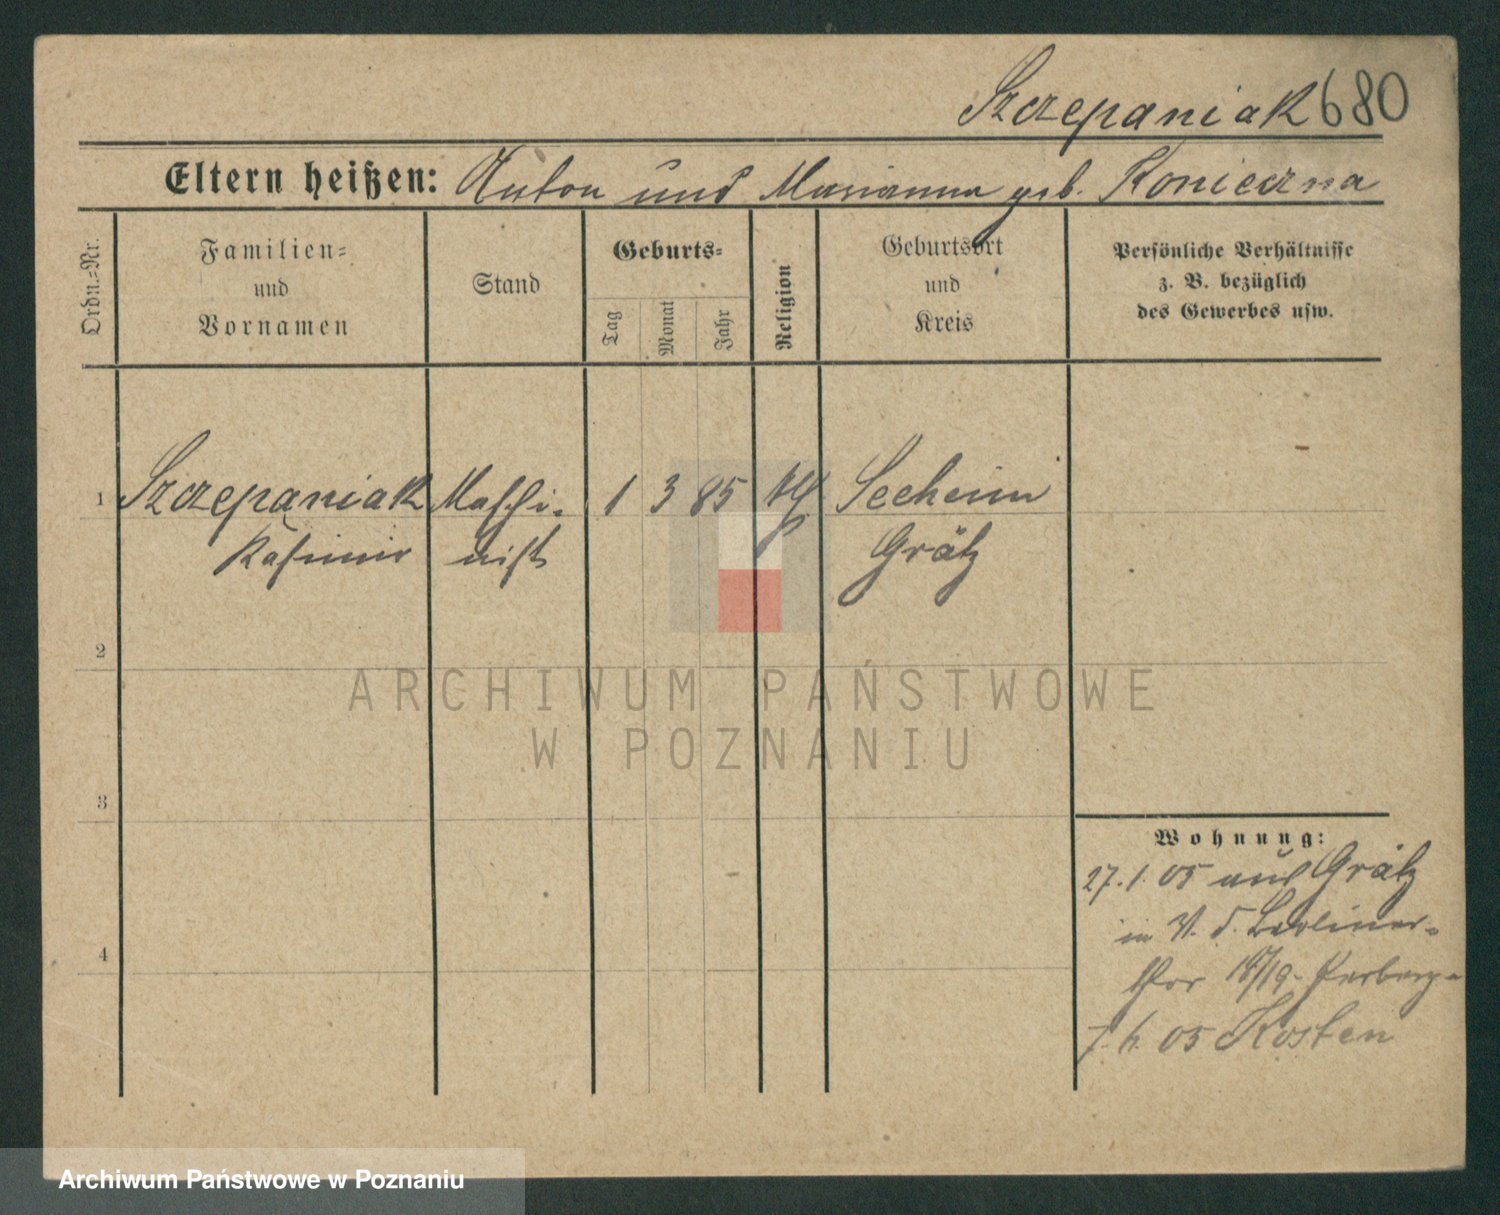 Szczepaniak 680
Eltern heißen: Anton und Marianna geb. Konieczna
Ordn.=Nr.
Familien=
und
Vornamen
Stand
Geburts=
Tag
Monat
Jahr
Religion
Geburtsort
und
Kreis
Persönliche Verhältnisse
z. B. bezüglich
des Gewerbes usw.
1 Szczepaniak Maschi- 1 3 85 kth Seeheim
Kasimir nist Grätz
2
ARCHIWUM PAŃSTWOWE
W POZNANIU
3
Wohnung:
27. 1. 05 aus Grätz
in V. d. Berliner-
thor 18/19.
4
7. 6. 05 Kosten
Archiwum Państwowe w Poznaniu